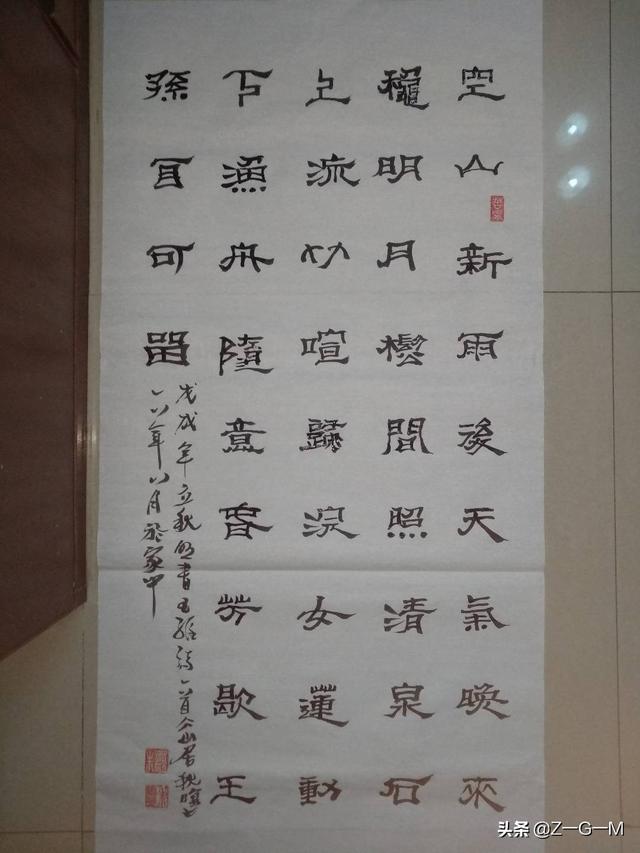 空山新雨後天氣晚來
龝明月松間照清泉石
上流竹喧歸浣女蓮動
下漁舟隨意春芳歇王
孫自可留
戊戌年立秋書王維詩一首山居秋暝
一八年八月於家中
头条 @Z—G—M